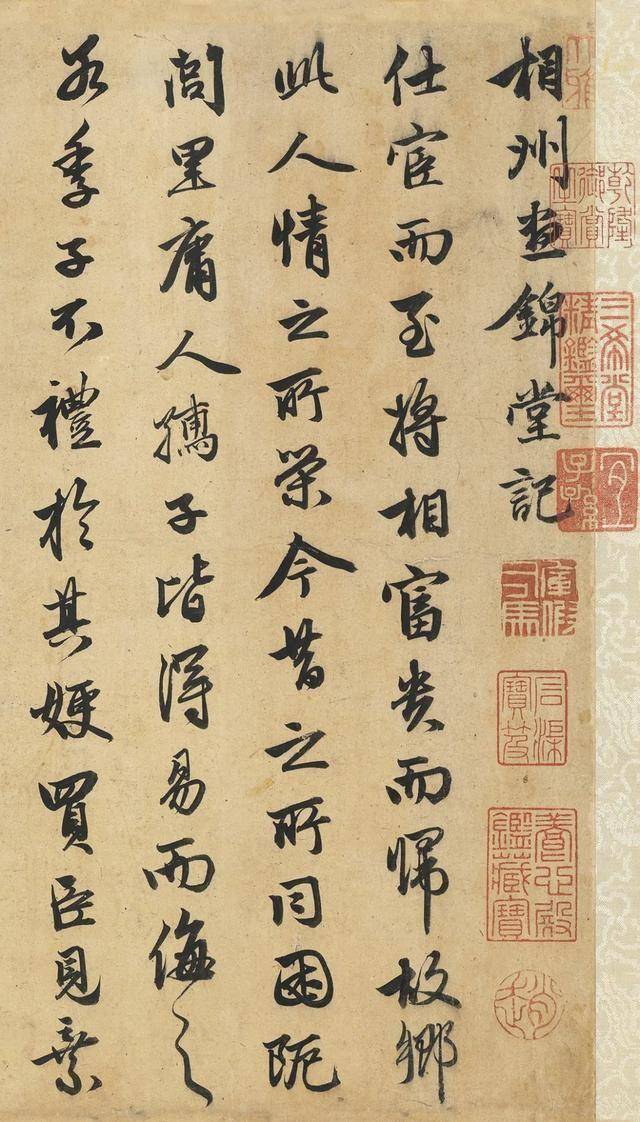 乾隆
御賞
之寶
三希堂
精鑑璽
宜
子孫
石渠
寶笈
養心殿
鑑藏寶
相州晝錦堂記
仕宦而至將相富貴而歸故鄉
此人情之所榮今昔之所同困阨
閭里庸人孺子皆得易而侮之
若季子不禮於其嫂買臣見棄